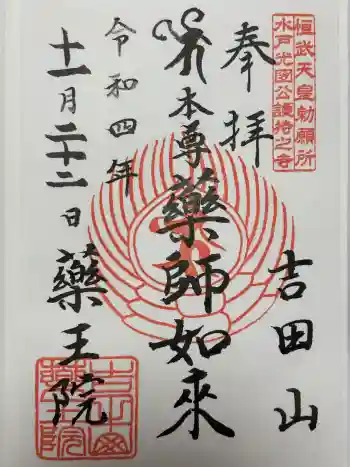 恒武天皇勅願所
水戸光圀公護持之寺
奉拝
吉田山
本尊藥師如來
令和四年
十一月二十二日
藥王院
吉田山
藥王院